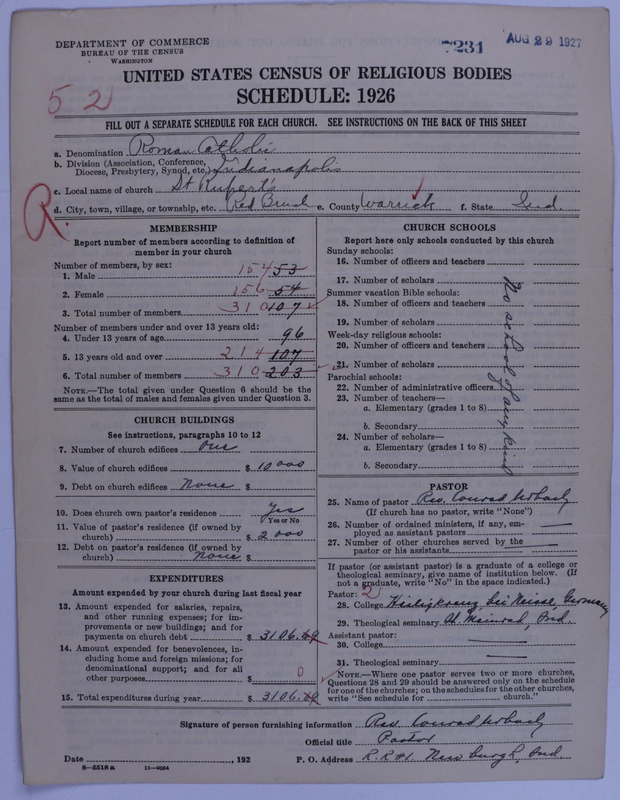 DEPARTMENT OF COMMERCE
BUREAU OF THE CENSUS
WASHINGTON
7231
AUG 29 1927
UNITED STATES CENSUS OF RELIGIOUS BODIES
SCHEDULE: 1926
52
FILL OUT A SEPARATE SCHEDULE FOR EACH CHURCH. SEE INSTRUCTIONS ON THE BACK OF THIS SHEET
a. Denomination Roman Catholic
b. Division (Association, Conference, Diocese, Presbytery, Synod, etc.) Indianapolis
c. Local name of church St Rupert's
R.
d. City, town, village, or township, etc. Red Brush e. County Warrick f. State Ind.
MEMBERSHIP
Report number of members according to definition of
member in your church
Number of members, by sex:
1. Male 154 53
2. Female 156 54
3. Total number of members 310 107
Number of members under and over 13 years old:
4. Under 13 years of age 96
5. 13 years old and over 214 107
6. Total number of members 310 203
NOTE.—The total given under Question 6 should be the
same as the total of males and females given under Question 3.
CHURCH BUILDINGS
See instructions, paragraphs 10 to 12
7. Number of church edifices One
8. Value of church edifices $ 10000
9. Debt on church edifices None $
10. Does church own pastor's residence Yes
Yes or No
11. Value of pastor's residence (if owned by
church) $ 2000
12. Debt on pastor's residence (if owned by
church) None $
EXPENDITURES
Amount expended by your church during last fiscal year
13. Amount expended for salaries, repairs,
and other running expenses; for im-
provements or new buildings; and for
payments on church debt $ 3106.69
14. Amount expended for benevolences, in-
cluding home and foreign missions; for
denominational support; and for all
other purposes $ 0
15. Total expenditures during year $ 3106.69
CHURCH SCHOOLS
Report here only schools conducted by this church
Sunday schools:
16. Number of officers and teachers
17. Number of scholars
Summer vacation Bible schools:
18. Number of officers and teachers
19. Number of scholars
Week-day religious schools:
20. Number of officers and teachers
21. Number of scholars
Parochial schools:
22. Number of administrative officers
23. Number of teachers—
a. Elementary (grades 1 to 8)
b. Secondary
24. Number of scholars—
a. Elementary (grades 1 to 8)
b. Secondary
No school of any kind
PASTOR
25. Name of pastor Rev. Conrad
(If church has no pastor, write "None")
26. Number of ordained ministers, if any, em-
ployed as assistant pastors —
27. Number of other churches served by the
pastor or his assistants —
If pastor (or assistant pastor) is a graduate of a college or
theological seminary, give name of institution below. (If
not a graduate, write "No" in the space indicated.)
Pastor: 2
28. College bei Neisse, Germany
29. Theological seminary St. Meinrad, Ind.
Assistant pastor:
30. College —
31. Theological seminary —
NOTE.—Where one pastor serves two or more churches,
Questions 28 and 29 should be answered only on the schedule
for one of the churches; on the schedules for the other churches,
write "See schedule for church."
Signature of person furnishing information Rev. Conrad
Official title Pastor
Date , 192
P. O. Address R.R #1. Newburgh, Ind
8—5518 a 11—9024